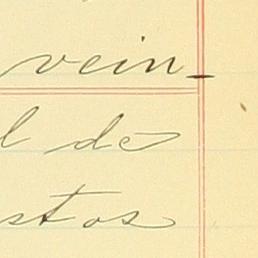 vein-
l de
stos